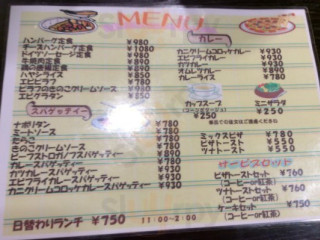 MENU
ハンバーグ定食 ¥980
チーズハンバーグ定食 ¥1080
ドイツソーセージ定食 ¥930
牛焼肉定食 ¥880
豚の生姜焼定食 ¥880
ハヤシライス ¥850
エビピラフ ¥780
ピラフのきのこクリームソース ¥890
エビグラタン ¥850
スパゲッティー
ナポリタン ¥780
ミートソース ¥780
たらこ ¥780
きのこクリームソース ¥780
ビーフストロガノフスパゲッティー
カレースパゲッティー ¥780
カツカレースパゲッティー ¥930
エビフライカレースパゲッティー ¥930
カニクリームコロッケカレースパゲッティー ¥930
日替わりランチ ¥750 11:00-2:00
カレー
カニクリームコロッケカレー ¥930
エビフライカレー ¥930
カツカレー ¥930
オムレツカレー ¥850
カレーライス ¥780
カップスープ
¥250
ミニサラダ
¥250
ミックスピザ ¥780
ピザトースト ¥550
ツナトースト ¥550
サービスセット
ピザトーストセット ¥760
(コーヒーor紅茶)
ツナトーストセット ¥760
(コーヒーor紅茶)
ケーキセット ¥750
(コーヒーor紅茶)